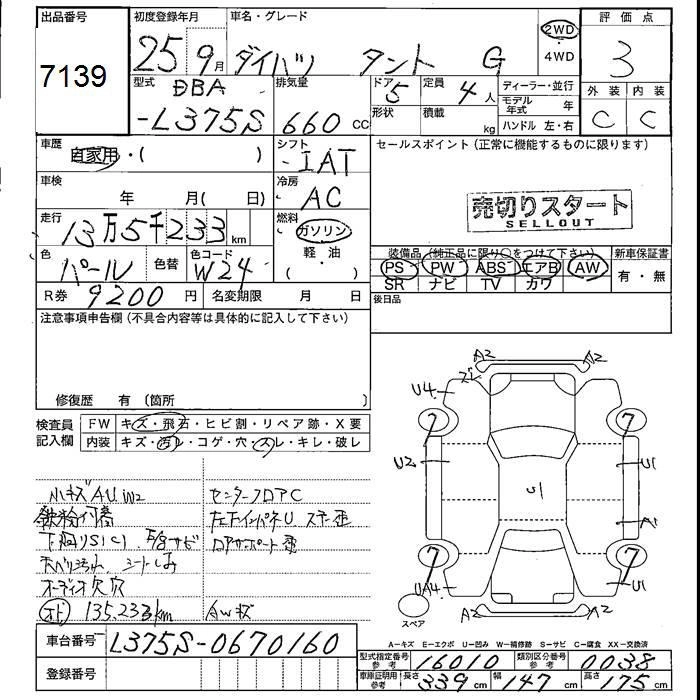 出品番号 初度登録年月 車名・グレード 評価点
7139 25 9月 ダイハツ タント G 2WD ・4WD 3
型式 DBA -L375S 排気量 660 cc
ドア 5 定員 4人 ディーラー・並行 外装 内装
形状 積載 kg モデル年式 年 C C
ハンドル 左・右
車歴 自家用・( ) シフト -IAT セールスポイント(正常に機能するものに限ります)
車検 年 月( 日) 冷房 AC
売切りスタート
SELLOUT
走行 13万5千233km 燃料 ガソリン・軽・油・( )
色 パール 色替 色コード W24
装備品(純正品に限り○をつけて下さい) 新車保証書
PS PW ABS エアB AW 有・無
SR ナビ TV カワ
R券 9200円 名変期限 月 日 後日品
注意事項申告欄(不具合内容等は具体的に記入して下さい)
修復歴 有(箇所 )
検査員記入欄 FW キズ・飛石・ヒビ割・リペア跡・X要
内装 キズ・汚レ・コゲ・穴・スレ・キレ・破レ
小キズAU センターフロアC
下廻りS(C)
シートしみ
オーディオ欠 穴
オド 135,233km AWキズ
A2 A2
ズレ
U4
7 7
U2 U1 U1
A1
7 7
UA4 U1
A2 A2
スペア
A−キズ E−エクボ U−凹み W−補修跡 S−サビ C−腐食 XX−交換済
車台番号 L375S-0670160
型式指定番号 参考 16010 類別区分番号 参考 0038
登録番号
車庫証明用 参考 長さ 339cm 幅 147cm 高さ 175cm